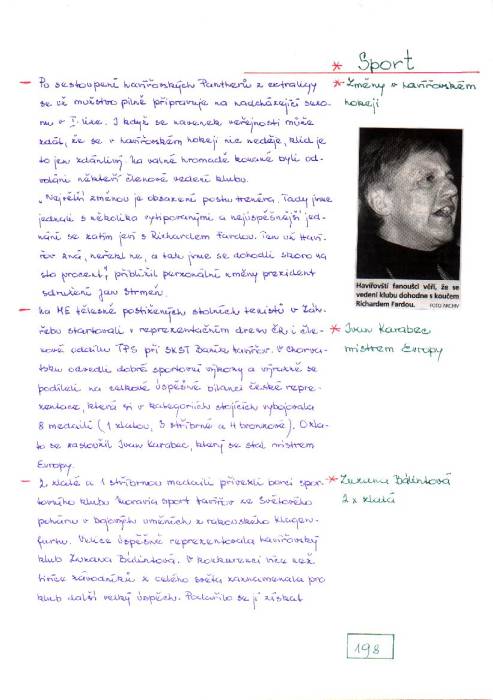 * Sport
— Po sestoupení havířovských Pantherů z extraligy
se už mužstvo pilně připravuje na nadcházející sezo-
nu v I. lize. I když se navenek veřejnosti může
zdát, že se v havířovském hokeji nic neděje, klid je
to jen zdánlivý. Na valné hromadě konané byli od-
voláni někteří členové vedení klubu.
„Největší změnou je obsazení postu trenéra. Tady jsme
jednali s několika vytipovanými a nejúspěšnější jed-
nání se zatím jeví s Richardem Fardou. Ten už Haví-
řov zná, neřekl ne, a tak jsme se dohodli skoro na
sto procent", přiblížil personální změny prezident
sdružení Jan Strmeň.
* Změny v havířovském
hokeji
Havířovští fanoušci věří, že se
vedení klubu dohodne s koučem
Richardem Fardou. FOTO ARCHIV
— Na ME tělesně postižených stolních tenistů v Záh-
řebu startovali v reprezentačním dresu ČR i čle-
nové oddílu TPS při SKST Baník Havířov. V Chorva-
tsku odvedli dobré sportovní výkony a výrazně se
podíleli na celkové úspěšné bilanci české repre-
zentace, která si v kategoriích stojících vybojovala
8 medailí (1 zlatou, 3 stříbrné a 4 bronzové). O zla-
to se zasloužil Ivan Karabec, který se stal mistrem
Evropy.
* Ivan Karabec
mistrem Evropy
— 2 zlaté a 1 stříbrnou medaili přivezli borci spor-
tovního klubu Moravia Sport Havířov ze Světového
poháru v bojových uměních z rakouského Klagen-
furtu. Velice úspěšně reprezentovala havířovský
klub Zuzana Bálintová. V konkurenci více než
tisíce závodníků z celého světa zaznamenala pro
klub další velký úspěch. Podařilo se jí získat
* Zuzana Bálintová
2 x zlatá
198